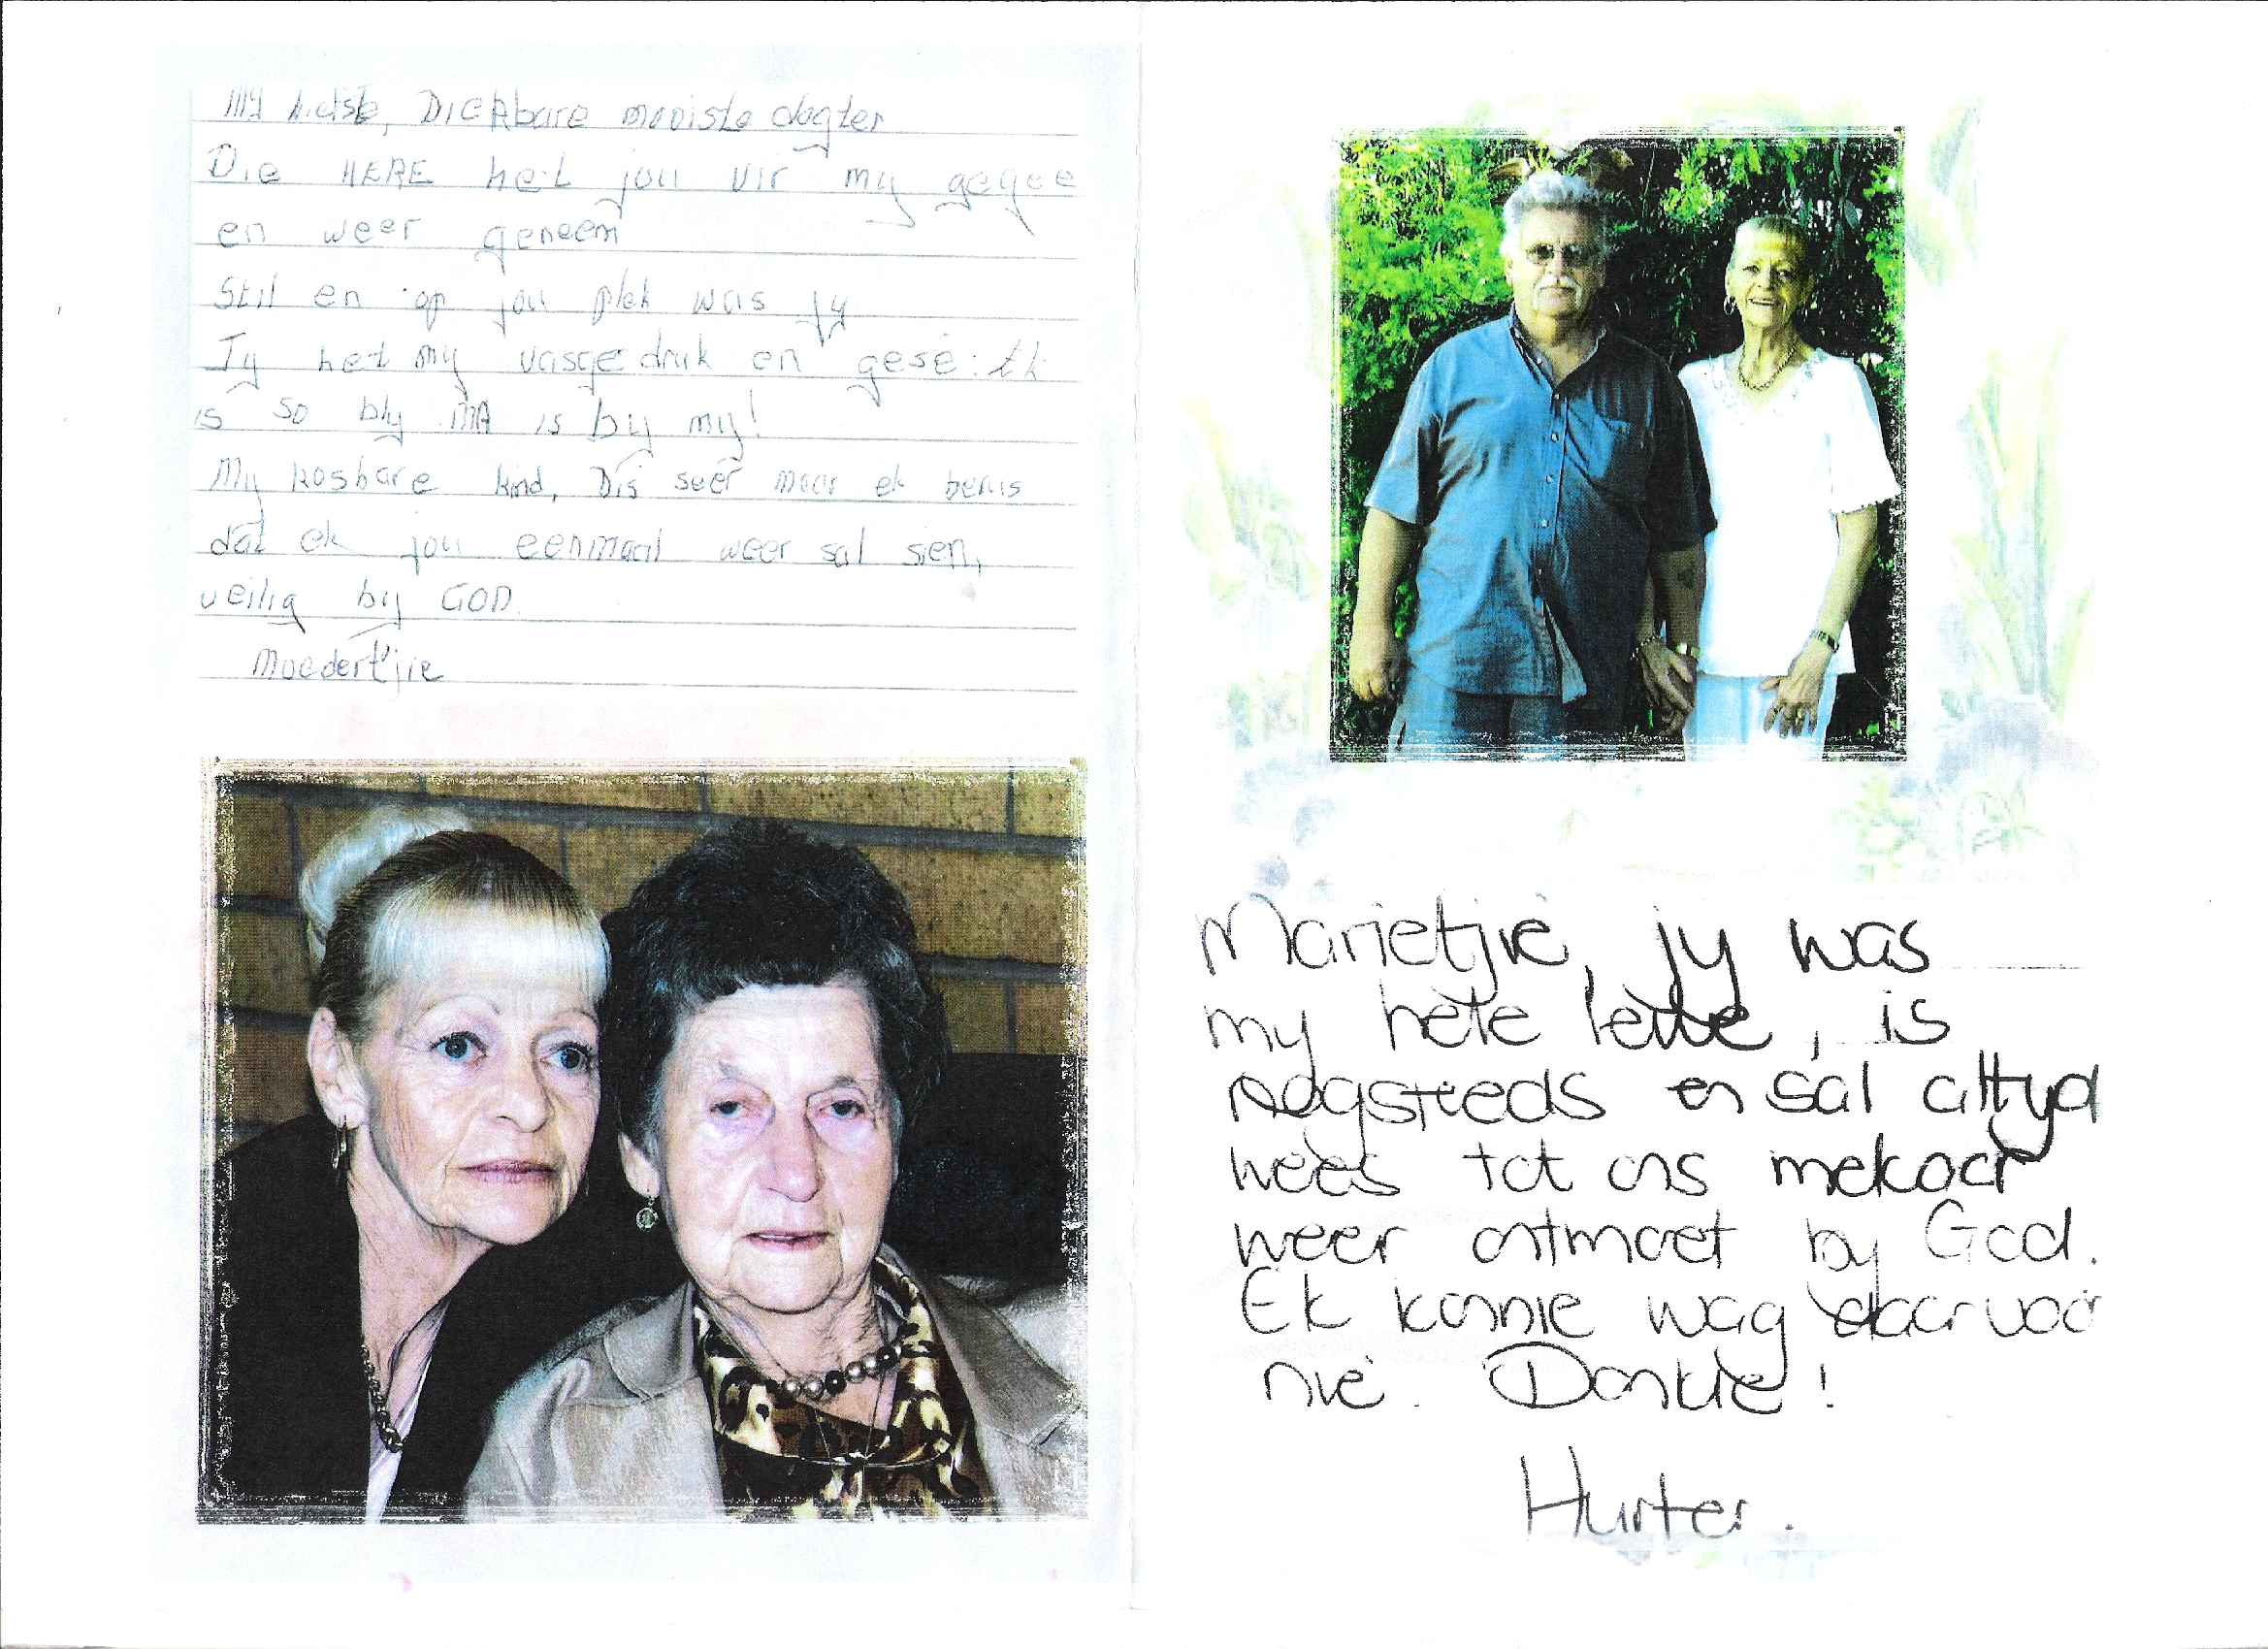 My liefste, Dierbare mooiste dogter
Die HERE het jou vir my gegee
en weer geneem
Stil en op jou plek was jy
Jy het my vasgedruk en gesê: Ek
is so bly MA is by my!
My kosbare kind, Dis seer maar ek berus
dat ek jou eenmaal weer sal sien,
veilig by GOD
Moedertjie
Marietjie, jy was
my hele lewe, is
nogsteeds en sal altyd
wees tot ons mekaar
weer ontmoet by God.
Ek kannie wag daarvoor
nie. Dankie!
Hurter.